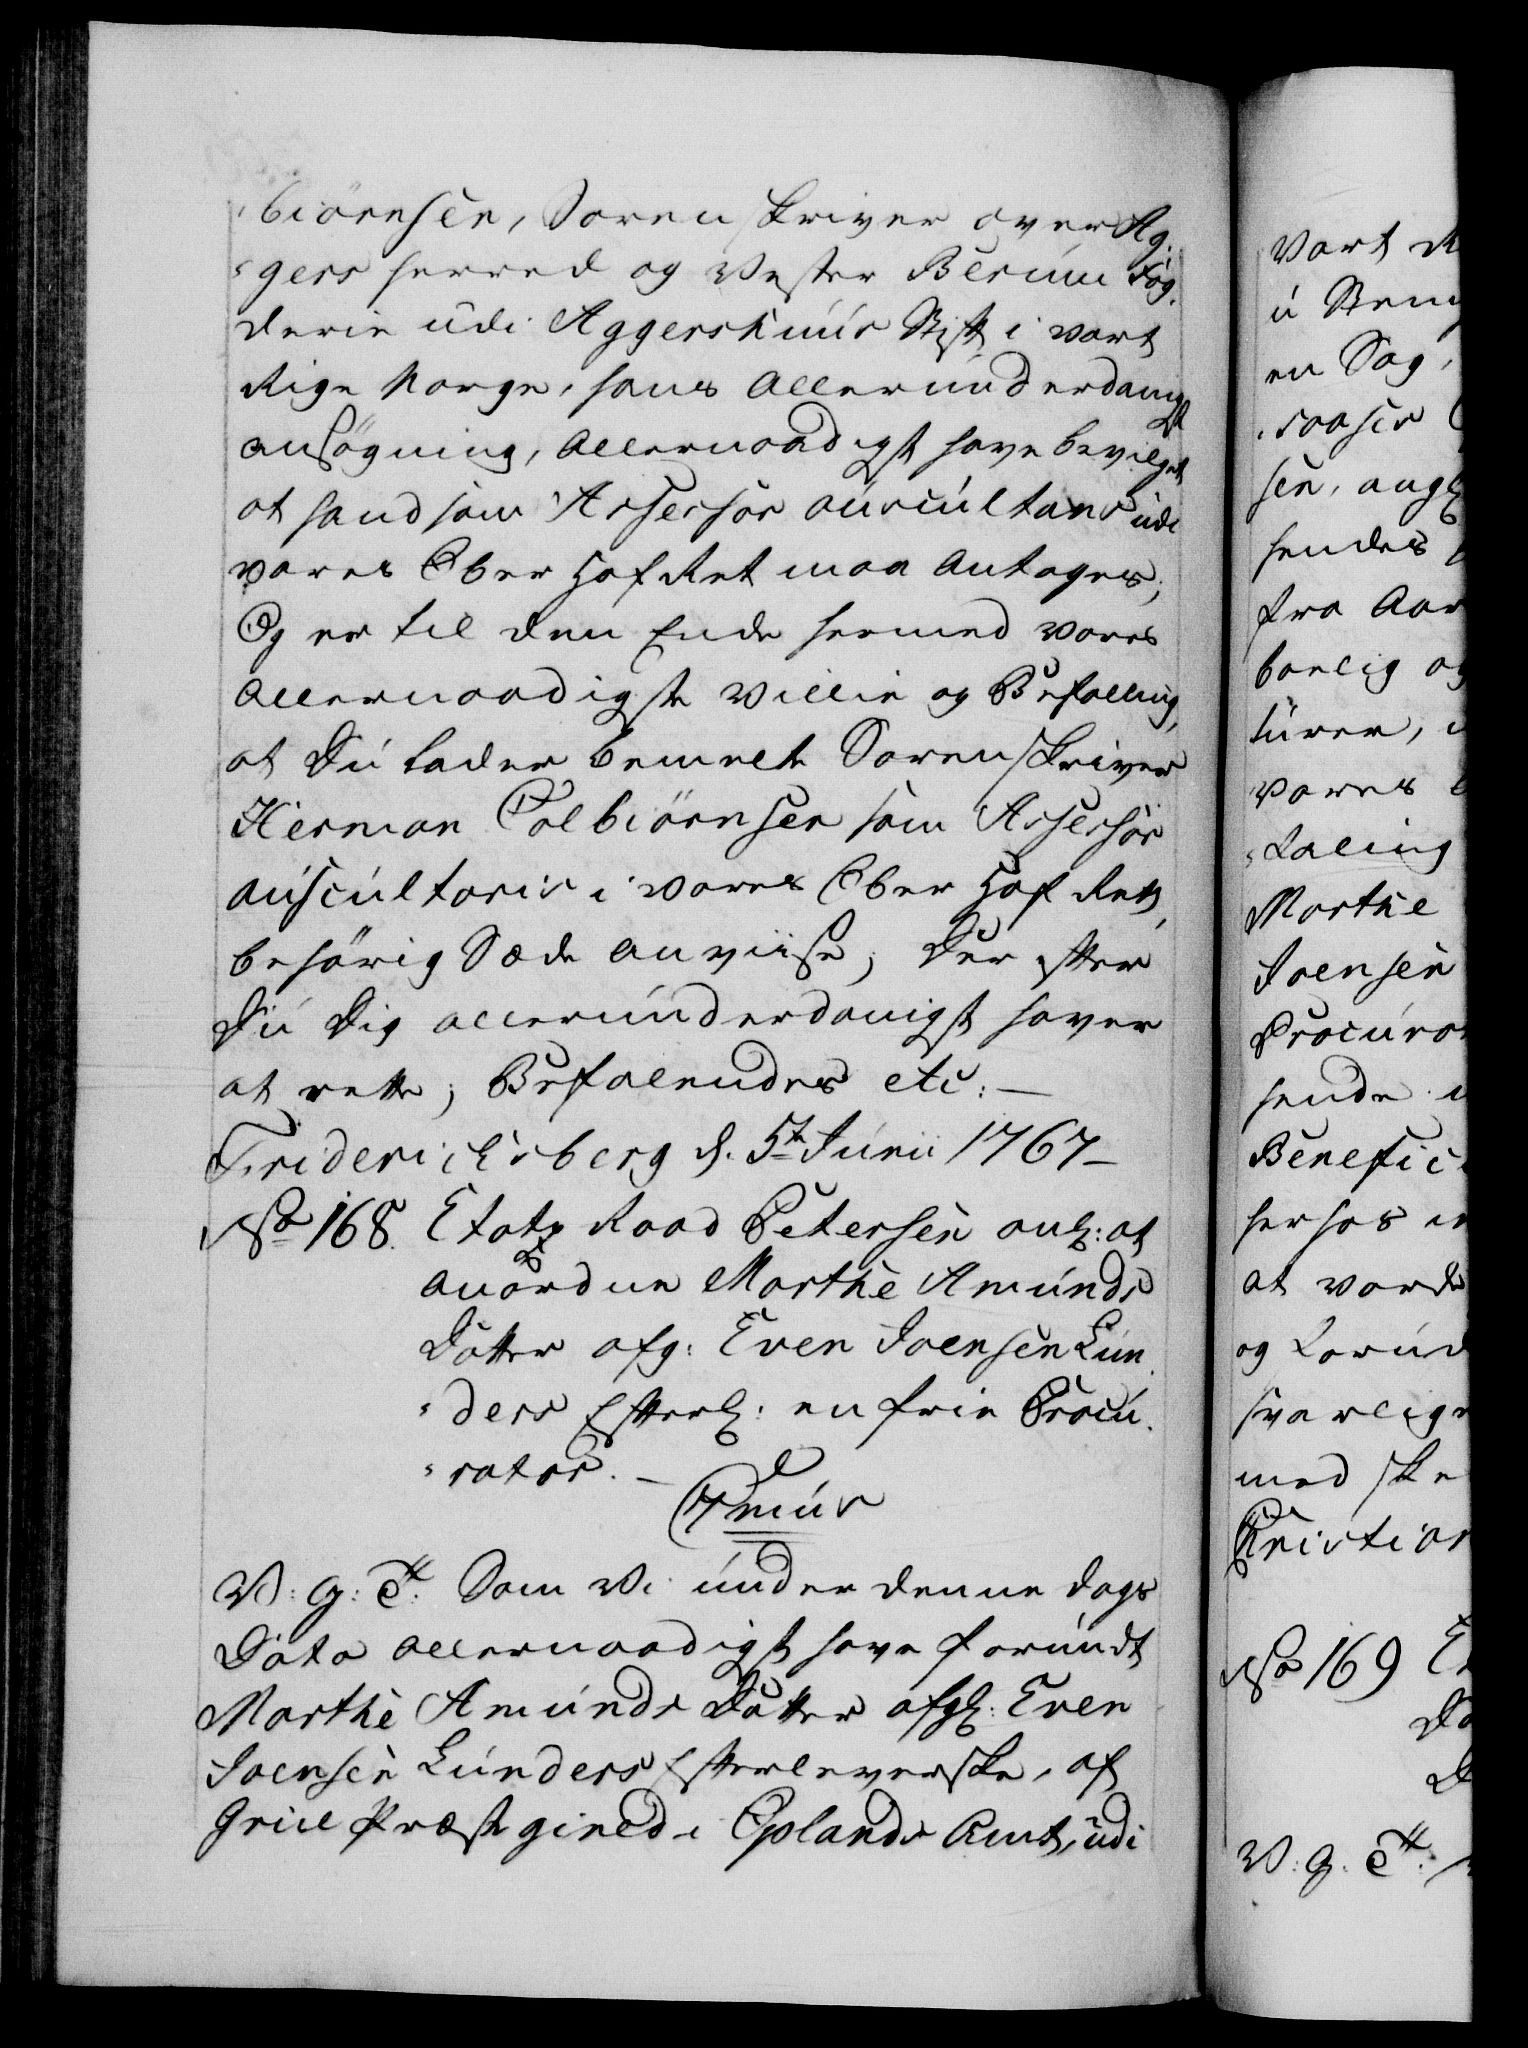 biörnsen, Sorenskriver over Ag-
gers herred og Vester Berum Fog-
derie udi Aggershuus Stift i vort
Rige Norge, hans allerunderdanigst
ansögning, allernaadigst have bevilget
at hand som Assessor auscultans udi
vores Ober Hof Ret maa antages;
Og er til den Ende hermed vores
allernaadigste villie og Befalling,
at Du lader bemelte Sorenskriver
Herman Colbiörnsen som Assessor
auscultoris i vores Ober Hof Rett,
behörig Sæde anviise; Der efter
Du dig allerunderdanigst haver
at rette; Befalendes etc: —
Friderichsberg d. 5te Junii 1767 —
No 168. Etatz Raad Petersen anl: at
anordne Marthe Amunds
Dotter afg: Even Joensen Lun-
ders Efterl: en frie Procu-
rator. —
V: G: T: Som Vi under denne dags
Dato allernaadigst have forundt
Marthe Amunds Dotter afgl: Even
Joensen Lunders Efterleverske, af
Grue Præstegield i Oplands Amt, udi
Vort R
en Sag,
sen, angl
hendes
fra Aar
barlig og
turer, 
vores
Marthe
Joensen
Procurat
hende
Benefic
at vorde
og
svarlig
med ske
Christian
No 169 E
D
D
V: G: T: